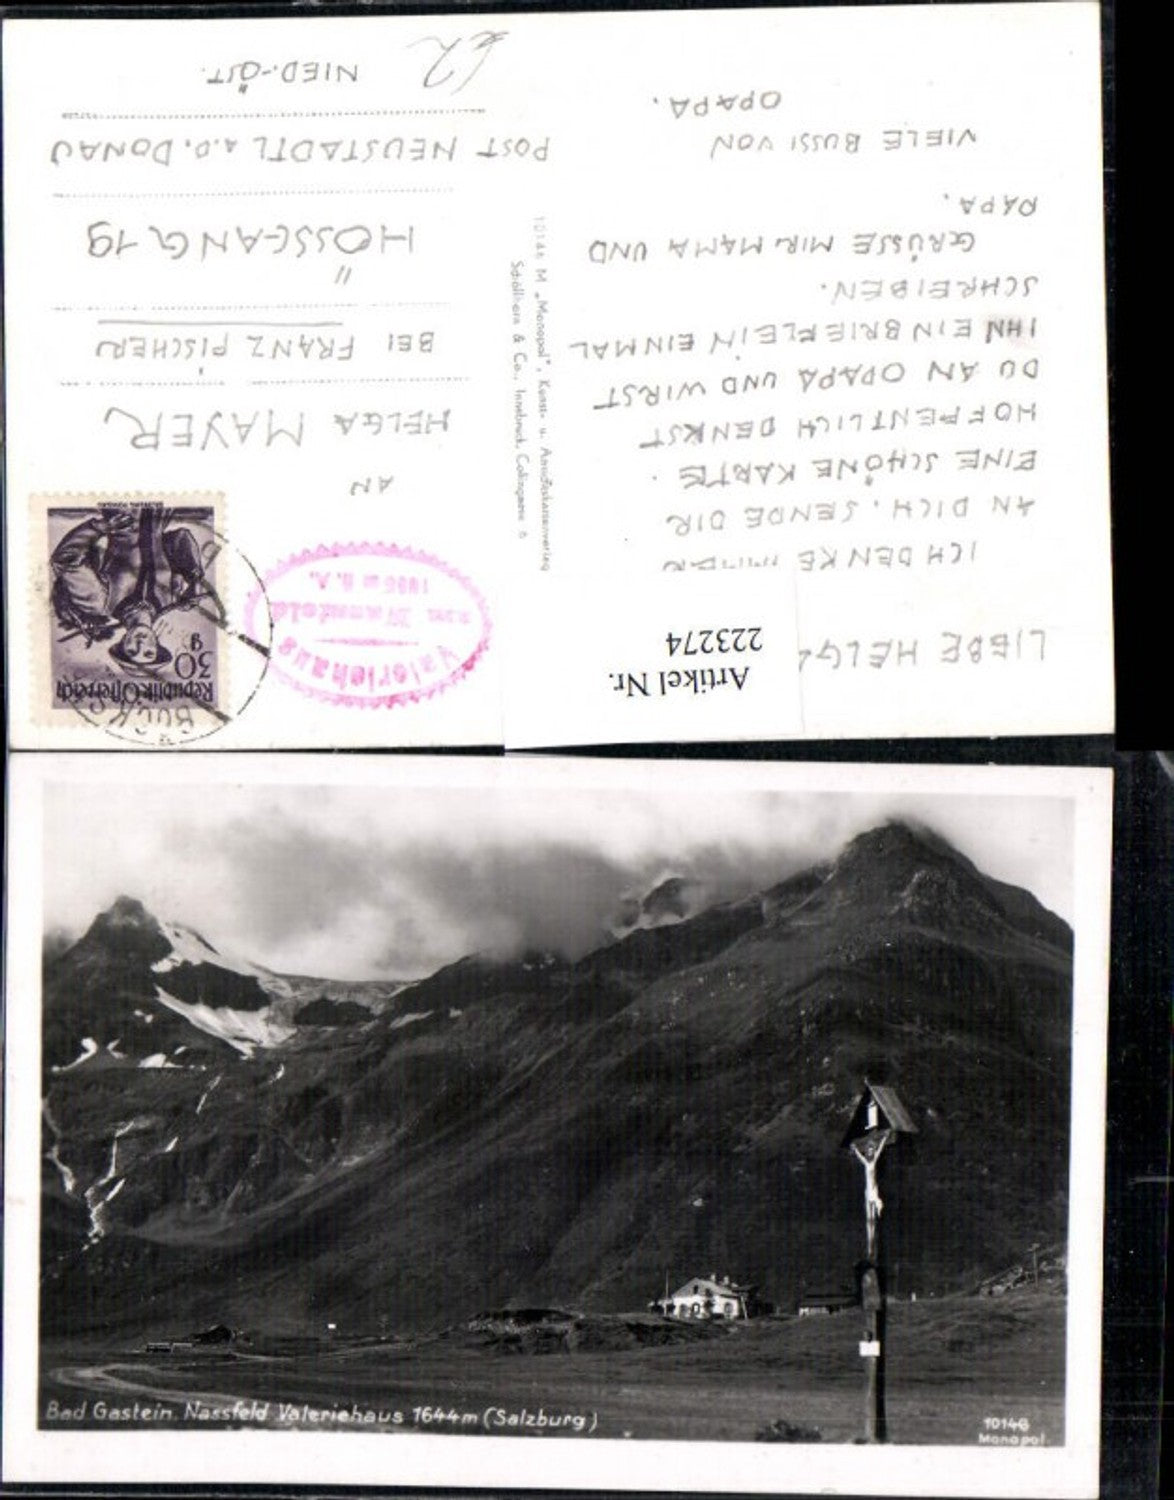 LIEBE HELGA
ICH DENKE IMMER
AN DICH. SENDE DIR
EINE SCHÖNE KARTE.
HOFFENTLICH DENKST
DU AN OPAPA UND WIRST
IHN EIN BRIEFLEIN EINMAL
SCHREIBEN.
GRÜSSE MIR MAMA UND
PAPA.
VIELE BUSSI VON
OPAPA.
Artikel Nr.
223274
Schöllhorn & Co., Innsbruck,
"Monopol", Kunst- u. Ansichtskartenverlag
Valeriehaus
Republik Österreich
30
g
BÖCKS
AN
HELGA MAYER
BEI FRANZ PISCHER
HÖSSGANG 19
POST NEUSTADTL A.D. DONAU
NIED.-ÖST.
Bad Gastein, Nassfeld Valeriehaus 1644m (Salzburg)
10146
Monopol.